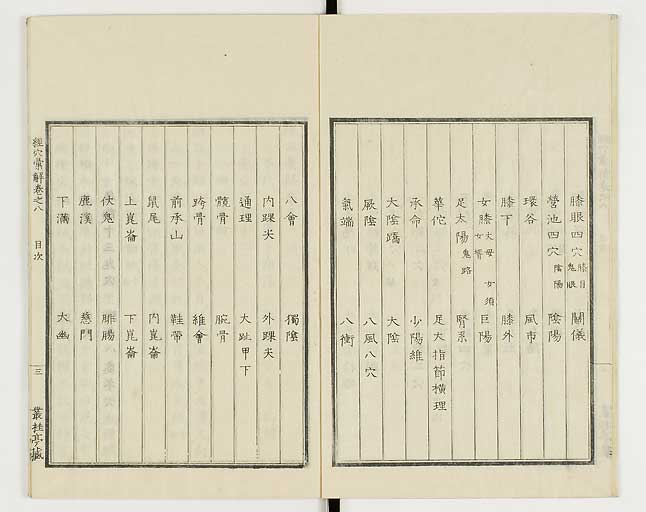 膝眼四穴 膝目 鬼眼 關儀
營池四穴 陰陽 陰陽
環谷 風市
膝下 膝外
女膝 丈母 女婿 女須 巨陽
足太陽 鬼路 腎系
華佗 足大指節橫理
承命 少陽維
大陰蹻 大陰
厥陰 八風八穴
氣端 八衝
八會 獨陰
內踝尖 外踝尖
通理 大趾甲下
髖骨 腕骨
跨骨 維會
前承山 鞋帶
鼠尾 內崑崙
上崑崙 下崑崙
伏兔 腓腸
鹿溪 慈門
下滿 大幽
經穴彙解卷之八 目次 三 叢桂亭藏